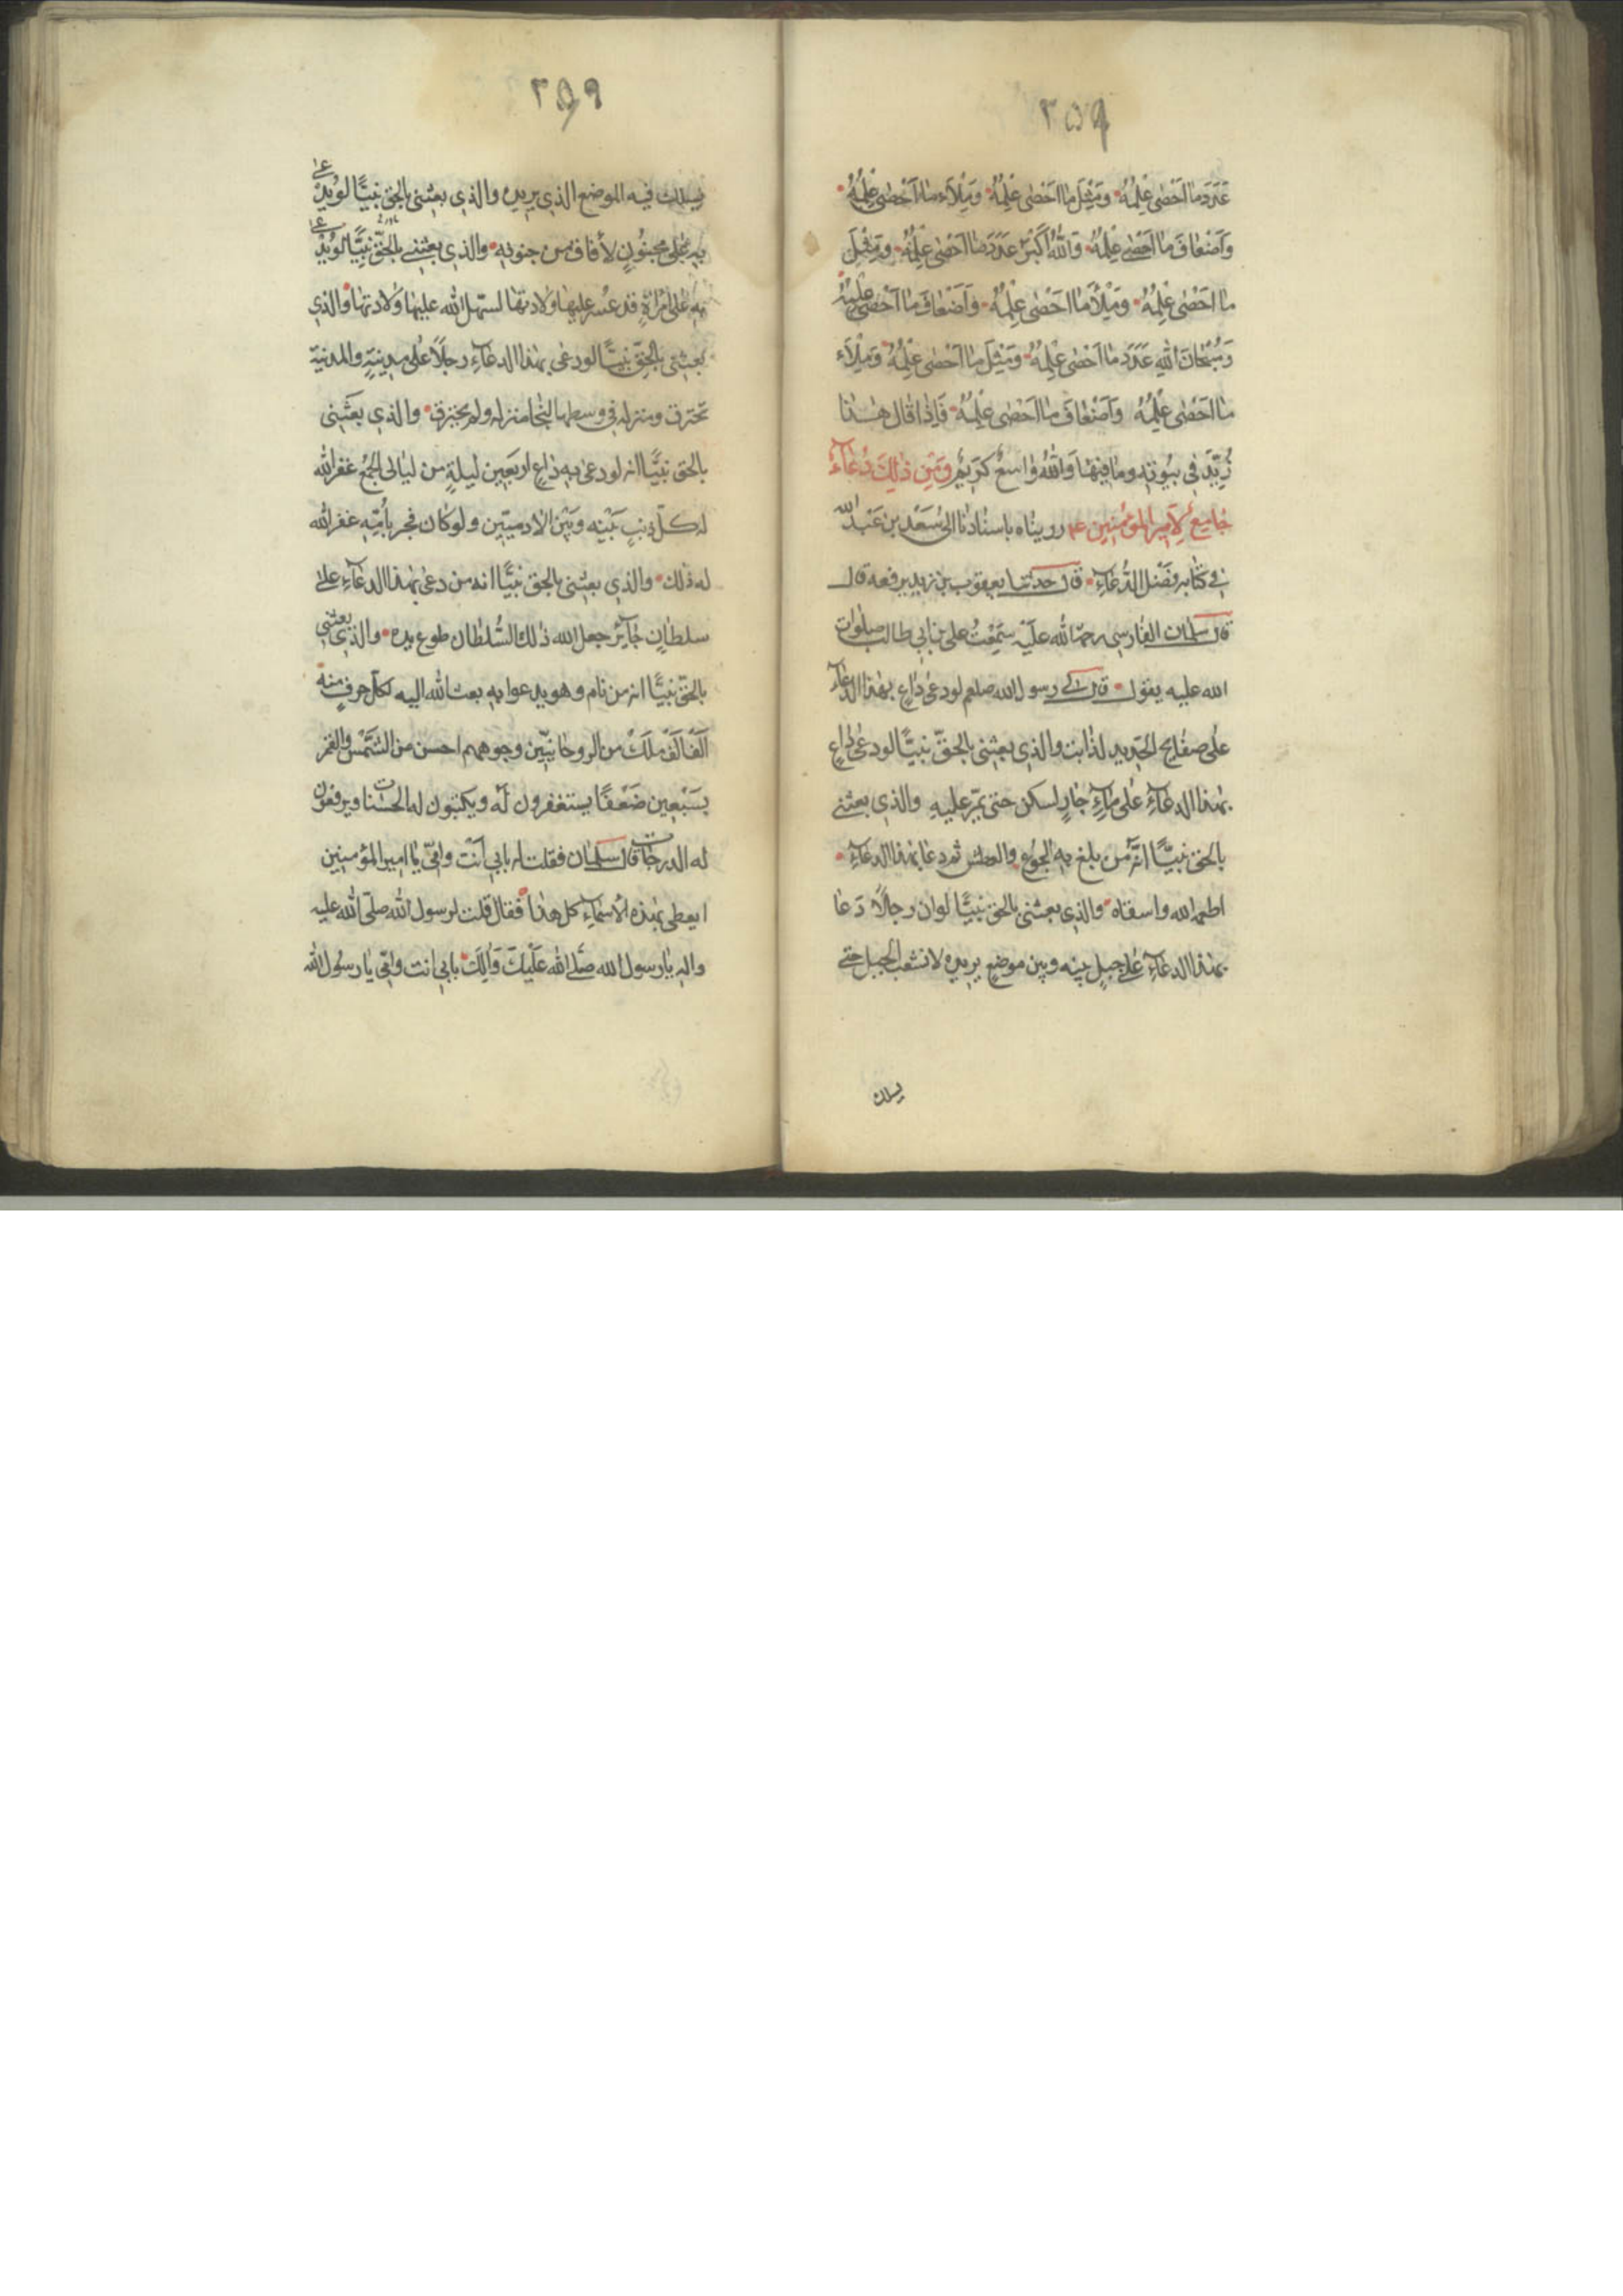 ٢٥٩
عَدَدَ مٰا اَحْصٰى عِلْمُهُ وَمِثْلَ مٰا اَحْصٰى عِلْمُهُ وَمِلْاَءَ مٰا اَحْصٰى عِلْمُهُ
وَاَضْعٰافَ مٰا اَحْصٰى عِلْمُهُ وَاللّٰهُ اَكْبَرُ عَدَدَ مٰا اَحْصٰى عِلْمُهُ وَمِثْلَ
مٰا اَحْصٰى عِلْمُهُ وَمِلْأَ مٰا اَحْصٰى عِلْمُهُ وَاَضْعٰافَ مٰا اَحْصٰى عِلْمُهُ
وَسُبْحٰانَ اللّٰهِ عَدَدَ مٰا اَحْصٰى عِلْمُهُ وَمِثْلَ مٰا اَحْصٰى عِلْمُهُ وَمِلْاَءَ
مٰا اَحْصٰى عِلْمُهُ وَاَضْعٰافَ مٰا اَحْصٰى عِلْمُهُ فَاِذٰا قٰال هٰذٰا
زُيِّدَ فِي بيُوته ومٰا فيهٰا وَاللّٰهُ وٰاسِعٌ كَرِيمٌ وَمِن ذٰلِكَ دُعٰآءٌ
جٰامِع لِاَمِيرِ المؤمنين ع‍م رويناه باسنادنا الى سَعْد بن عَبْد اللّٰه
في كتابه فضْل الدُّعٰآءِ قال حدّثنا يعقوب بن زيد يرفعه قال
قال سلمان الفارسي رحمة اللّٰه عليه سَمِعْتُ على بن ابي طالب صلوات
الله عليه يقول قال لي رسول الله صلعم لو دعى دٰاعٍ بهٰذا الدعٰآء
على صفٰايح الحَديد لذابت والذي بعثنى بالحقّ نبيًّا لو دعى دٰاعٍ
بهٰذا الدعٰآءِ على مٰآءٍ جٰارٍ لسكن حتى يمرّ عليهِ والذي بعثنى
بالحق نبيًّا انّه من بلغ بهِ الجوُع والعطش ثم دعا بهٰذا الدعٰآءِ
اطعمه الله واسقٰاه والذي بعثنى بالحق نبيًّا لو ان رجلًا دَعٰا
بهٰذا الدعٰآءِ على جبلٍ بينه وبين موضعٍ يريده لانشعب الجبل حتى
يسلك
٢٥٩
يسلك فيه الموضع الذي يريده والذي بعثنى بالحق نبيًّا لو يُدْعىٰ
بهِ عَلى مجنُونٍ لأفاق من جنونهِ والذي بعثنى بالحقّ نبيًّا لو يُدْعىٰ
بهِ على امْرأةٍ قد عسُر عليهٰا وَلادتهٰا لسهّل اللّٰه عليهٰا ولادتهٰا والذي
بعثنى بالحقّ نبيًّا لو دعى بهٰذا الدعٰآءِ رجلًا على مدينةٍ والمدينة
تحترق ومنزله في وسطهٰا لنجٰا منزله ولم يحترق والذي بعَثنى
بالحق نبيًّا انه لو دعى به دٰاعٍ اربَعين ليلةٍ من ليٰالى الجُمع غفر اللّٰه
له كلّ ذنبٍ بَيْنه وبَيْن الآدميّين ولو كان فجر بأُمّهِ غفر اللّٰه
له ذٰلك والذي بعثنى بالحق نبيًّا انه من دعى بهٰذا الدعٰآءِ على
سلطٰانٍ جٰآئر جعل الله ذٰلك السُّلطان طوع يده والذي بعثنى
بالحقّ نبيًّا انه من نٰام وهو يدعوا بهِ بعث اللّٰه اليه لكلّ حرفٍ منه
اَلْفَ اَلْفَ مَلَكْ من الروحٰانيّين وجوههم احسن من الشَّمْس والقمر
بسَبْعين ضَعْفًا يستغفرون لَه ويكتبون له الحسَنات ويرفعون
له الدرجٰات قال سلمان فقلت له بابي اَنْت وامّي يٰا امير المؤمنين
ايعطى بهٰذه الاَسْمٰآءِ كل هٰذٰا فقال قلت لرسول اللّٰه صلّى اللّٰه عليه
واله يٰا رسول الله صلّى اللّٰه عَلَيْكَ وَآلِكَ بابي انت وامّي يٰا رسوُل اللّٰه